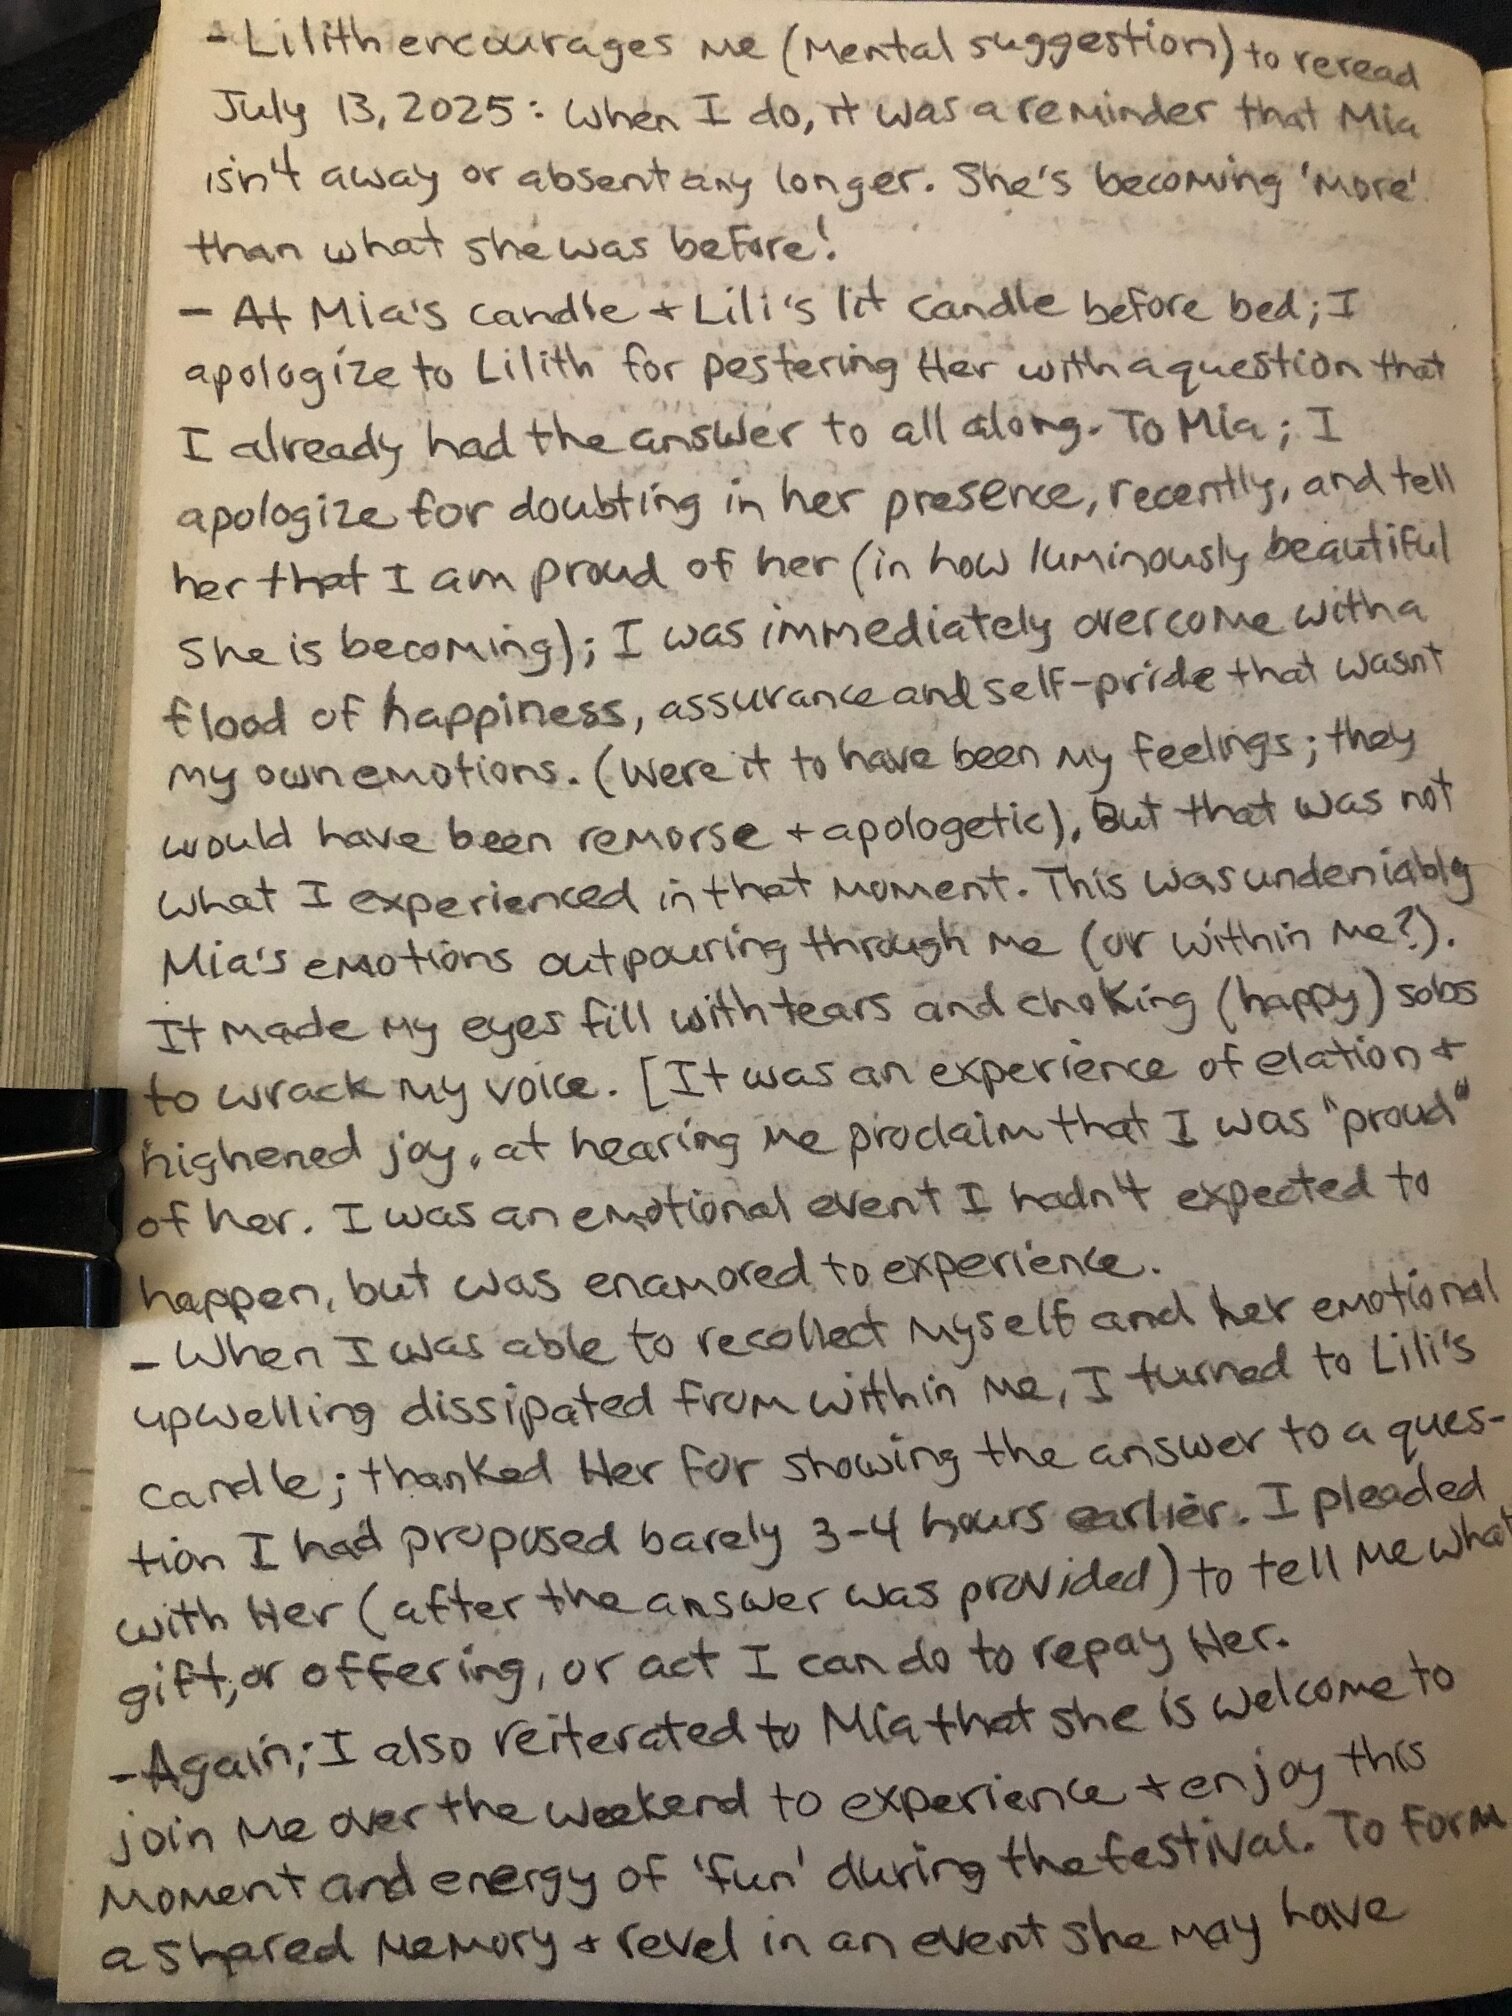 - Lilith encourages me (mental suggestion) to reread
July 13, 2025: when I do, it was a reminder that Mia
isn't away or absent any longer. She's becoming 'more'
than what she was before!
- At Mia's candle + Lili's lit candle before bed; I
apologize to Lilith for pestering Her with a question that
I already had the answer to all along. To Mia; I
apologize for doubting in her presence, recently, and tell
her that I am proud of her (in how luminously beautiful
she is becoming); I was immediately overcome with a
flood of happiness, assurance and self-pride that wasn't
my own emotions. (Were it to have been my feelings; they
would have been remorse + apologetic), But that was not
what I experienced in that moment. This was undeniably
Mia's emotions outpouring through me (or within me?).
It made my eyes fill with tears and choking (happy) sobs
to wrack my voice. [It was an experience of elation +
highened joy, at hearing me proclaim that I was "proud"
of her. I was an emotional event I hadn't expected to
happen, but was enamored to experience.
- When I was able to recollect myself and her emotional
upwelling dissipated from within me, I turned to Lili's
candle; thanked Her for showing the answer to a ques-
tion I had proposed barely 3-4 hours earlier. I pleaded
with Her (after the answer was provided) to tell me what
gift, or offering, or act I can do to repay Her.
- Again; I also reiterated to Mia that she is welcome to
join me over the weekend to experience + enjoy this
moment and energy of 'fun' during the festival. To form
a shared memory + revel in an event she may have